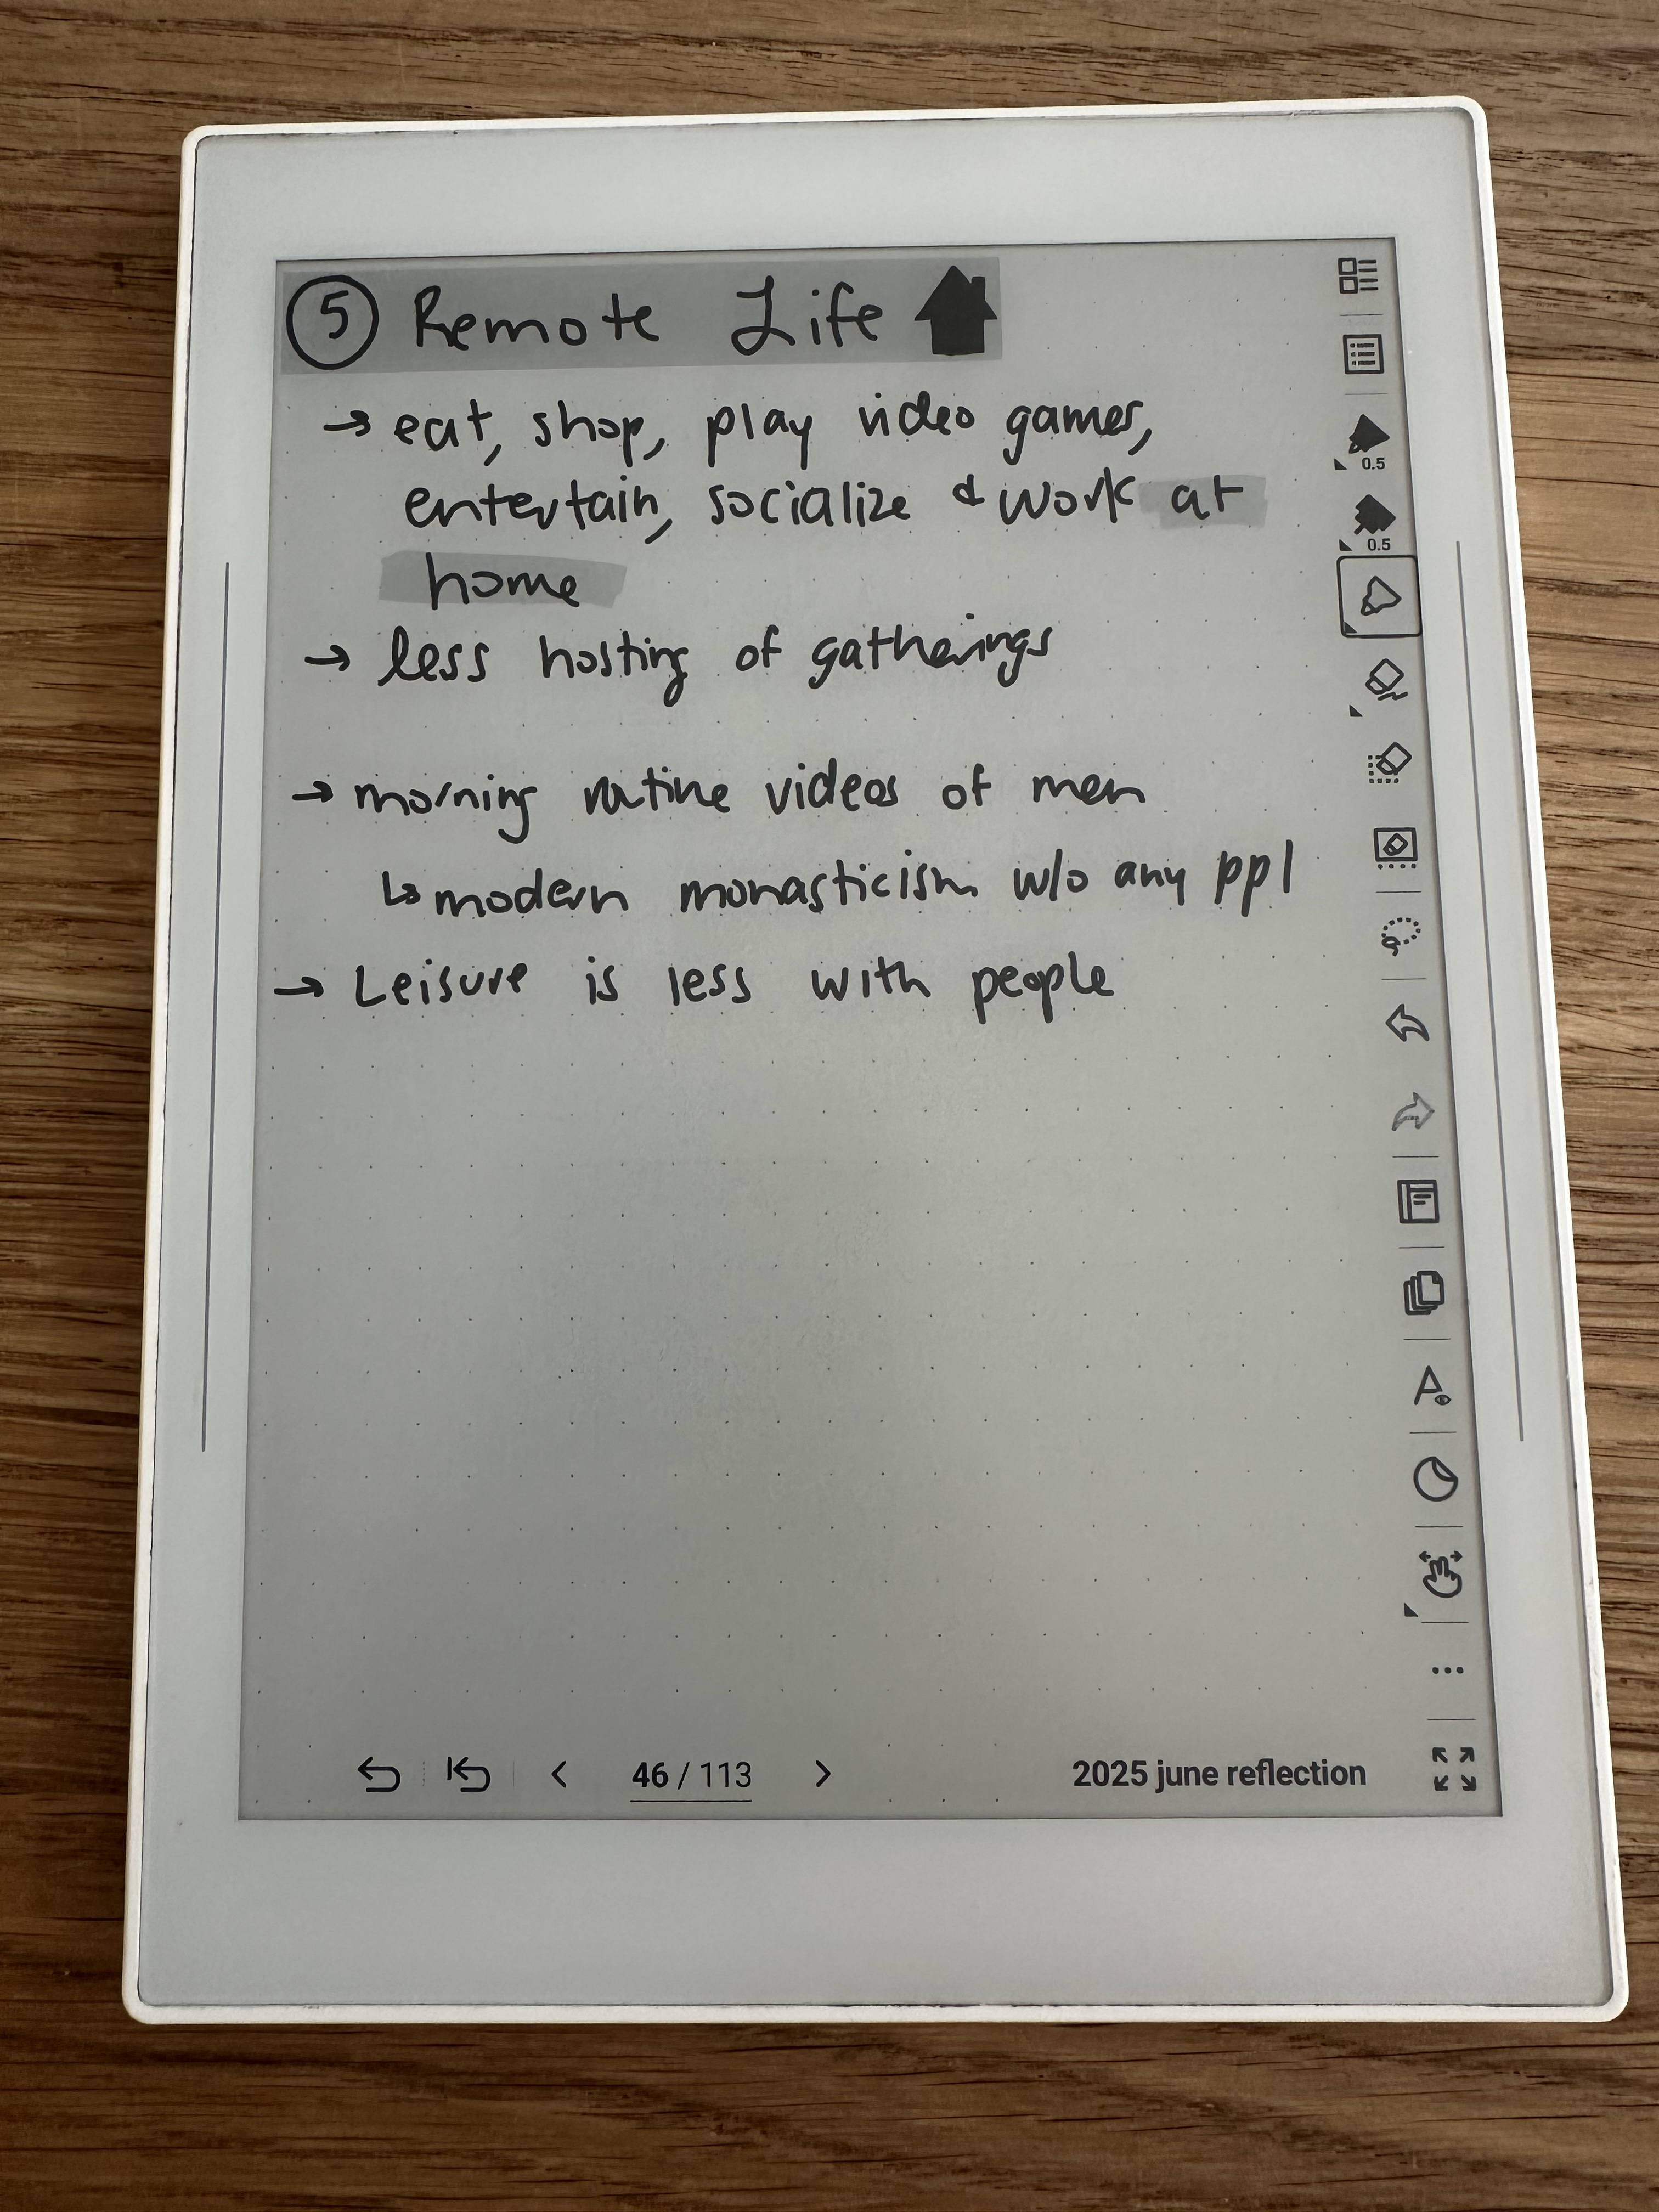 5 Remote Life
→ eat, shop, play video games,
entertain, socialize & work at
home
→ less hosting of gatherings
→ morning routine videos of men
↳ modern monasticism w/o any ppl
→ Leisure is less with people
0.5
0.5
46 / 113
2025 june reflection